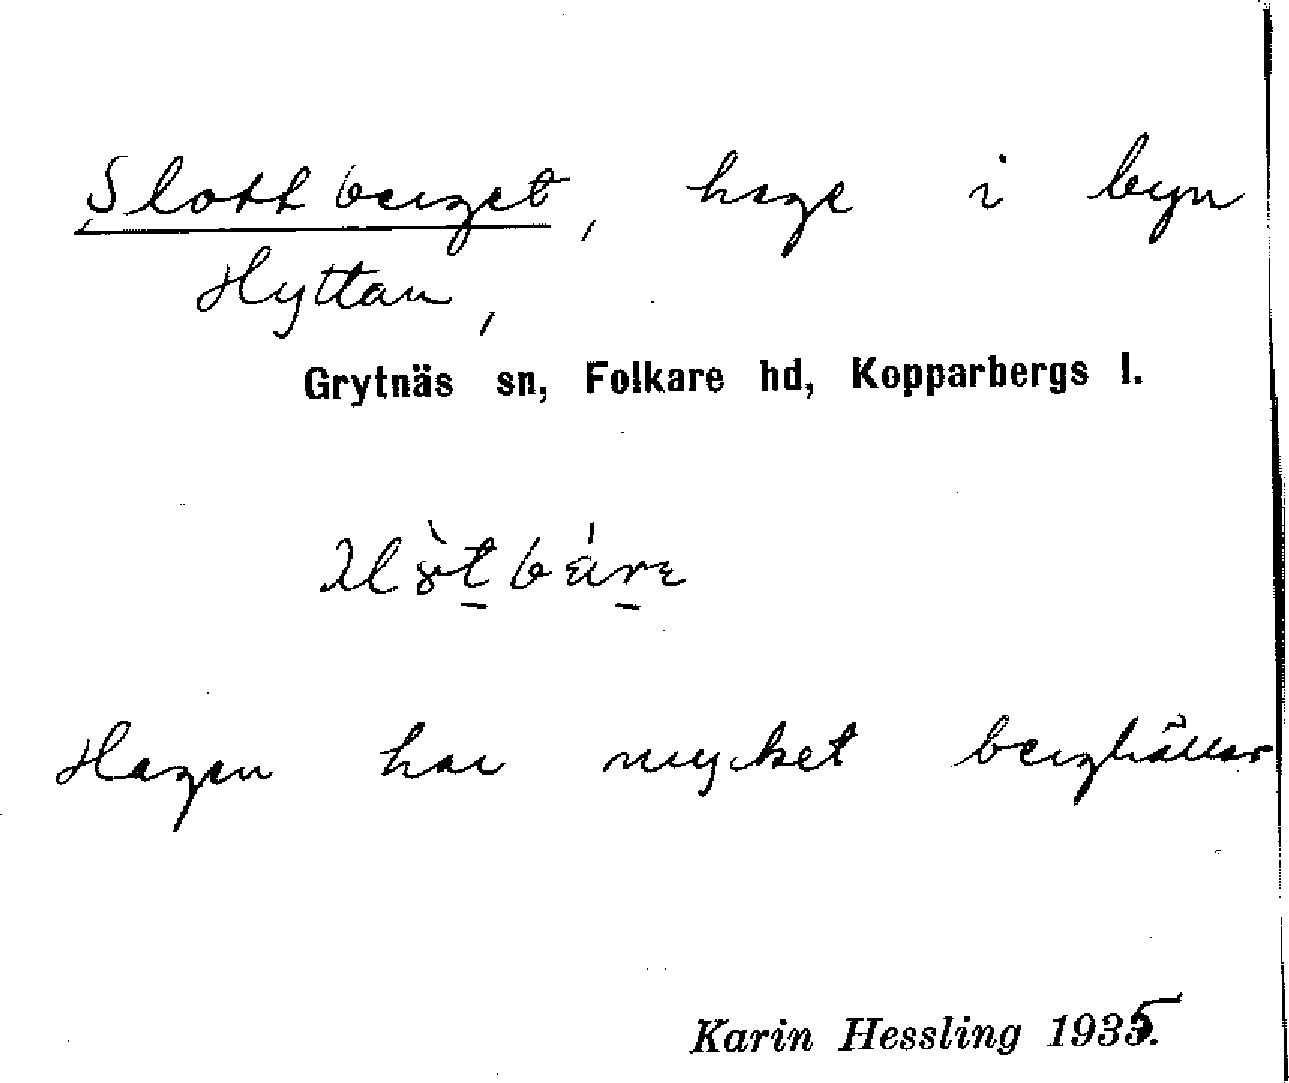 Slottberget, hage i byn
Hyttan,
Grytnäs sn, Folkare hd, Kopparbergs l.
Hagen har mycket berghällar
Karin Hessling 1935.